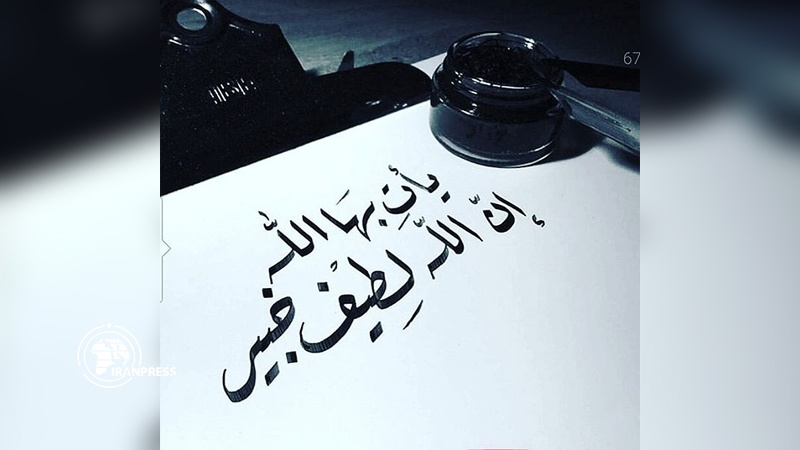 67
يأتِ بهَا اللَّه
إنَّ اللَّه لطِيْف خبير
IRANPRESS